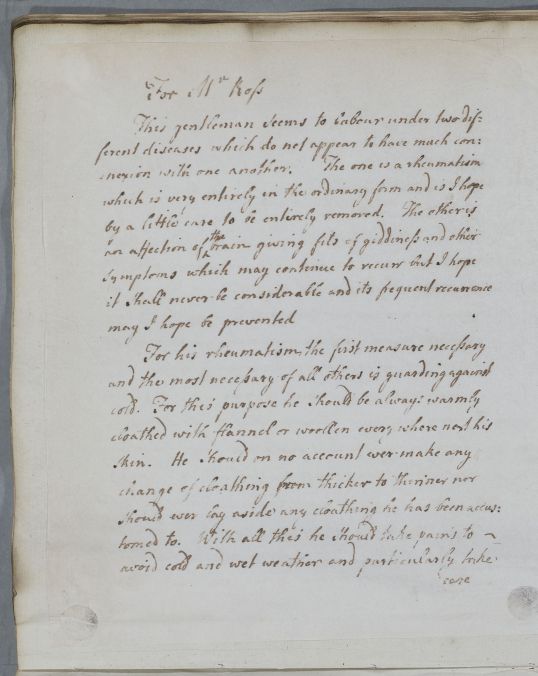 For Mr Ross
This gentleman seems to labour under two dif=
ferent diseases which do not appear to have much con=
nexion with one another. The one is a rheumatism
which is very entirely in the ordinary form and is I hope
by a little care to be entirely removed. The other is
an affection of the brain giving fits of giddiness and other
symptoms which may continue to recurr but I hope
it shall never be considerable and its frequent recurrence
may I hope be prevented
For his rheumatism the first measure necessary
and the most necessary of all others is guarding against
cold. For this purpose he should be always warmly
cloathed with flannel or woollen every where next his
skin. He should on no account ever make any
change of cloathing from thicker to thinner nor
should ever lay aside any cloathing he has been accus:
tomed to. With all this he should take pains to
avoid cold and wet weather and particularly take
care